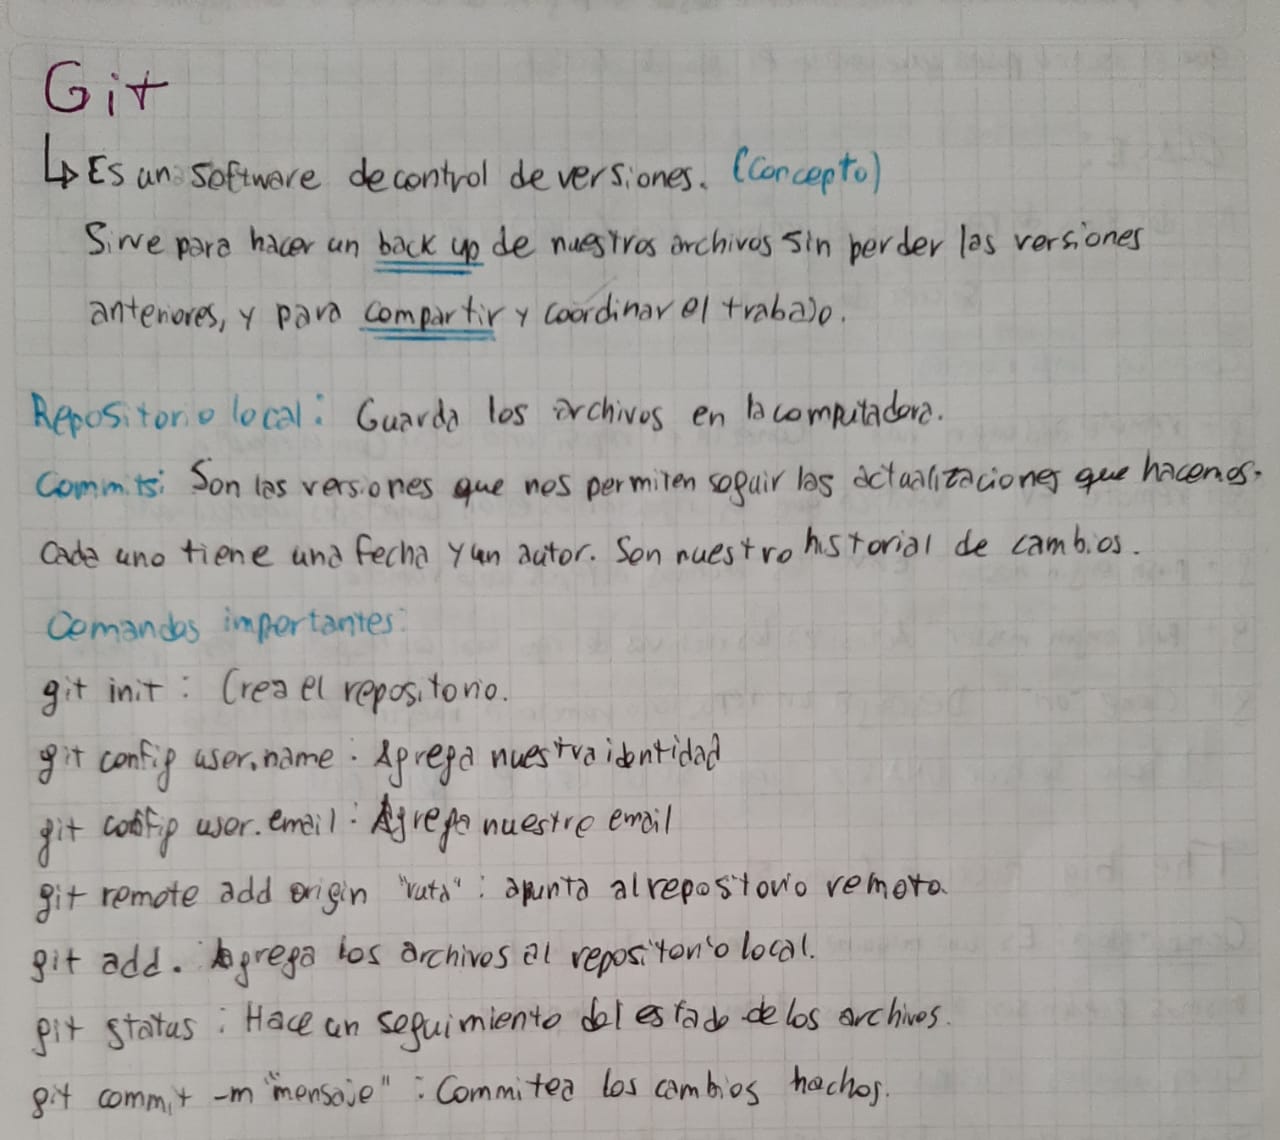 Git
↳ Es un software de control de versiones. (Concepto)
Sirve para hacer un back up de nuestros archivos sin perder las versiones
anteriores, y para compartir y coordinar el trabajo.
Repositorio local: Guarda los archivos en la computadora.
Commits: Son las versiones que nos permiten seguir las actualizaciones que hacemos.
Cada uno tiene una fecha y un autor. Son nuestro historial de cambios.
Comandos importantes:
git init: Crea el repositorio.
git config user.name: Agrega nuestra identidad
git config user.email: Agrega nuestro email
git remote add origin "ruta": apunta al repositorio remoto.
git add. Agrega los archivos al repositorio local.
git status: Hace un seguimiento del estado de los archivos.
git commit -m "mensaje": Commitea los cambios hechos.